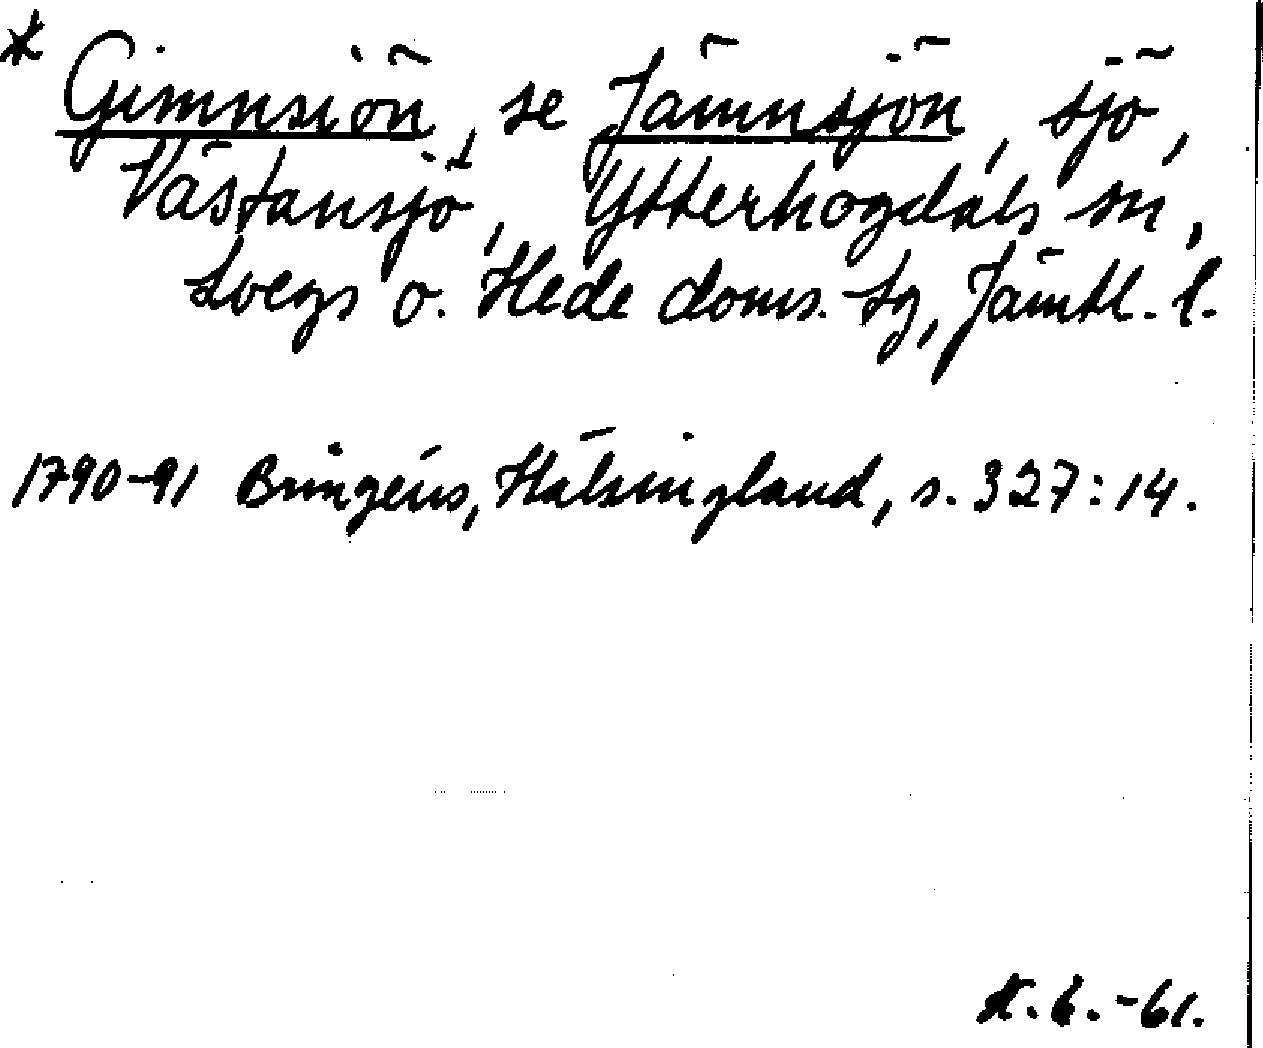 * Gimnsiön, se Jämnsjön, sjö,
Västansjö, Ytterhogdals sn,
Svegs o. Hede doms. tg, Jämtl. l.
1790-91 Bringéus, Hälsingland, s. 327:14.
-61.